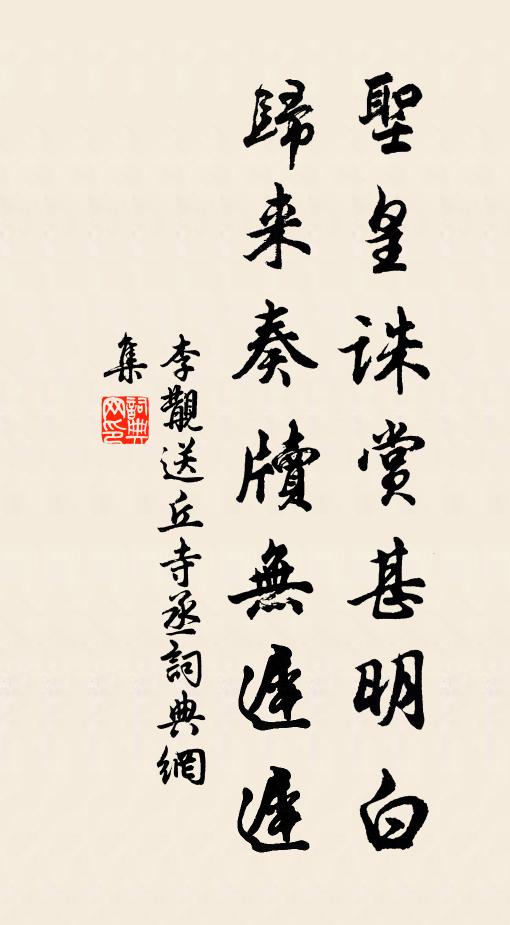 聖皇誅賞甚明白
歸来奏牘無遲遲
李覯送丘寺丞詞典網
集
詞典
网印